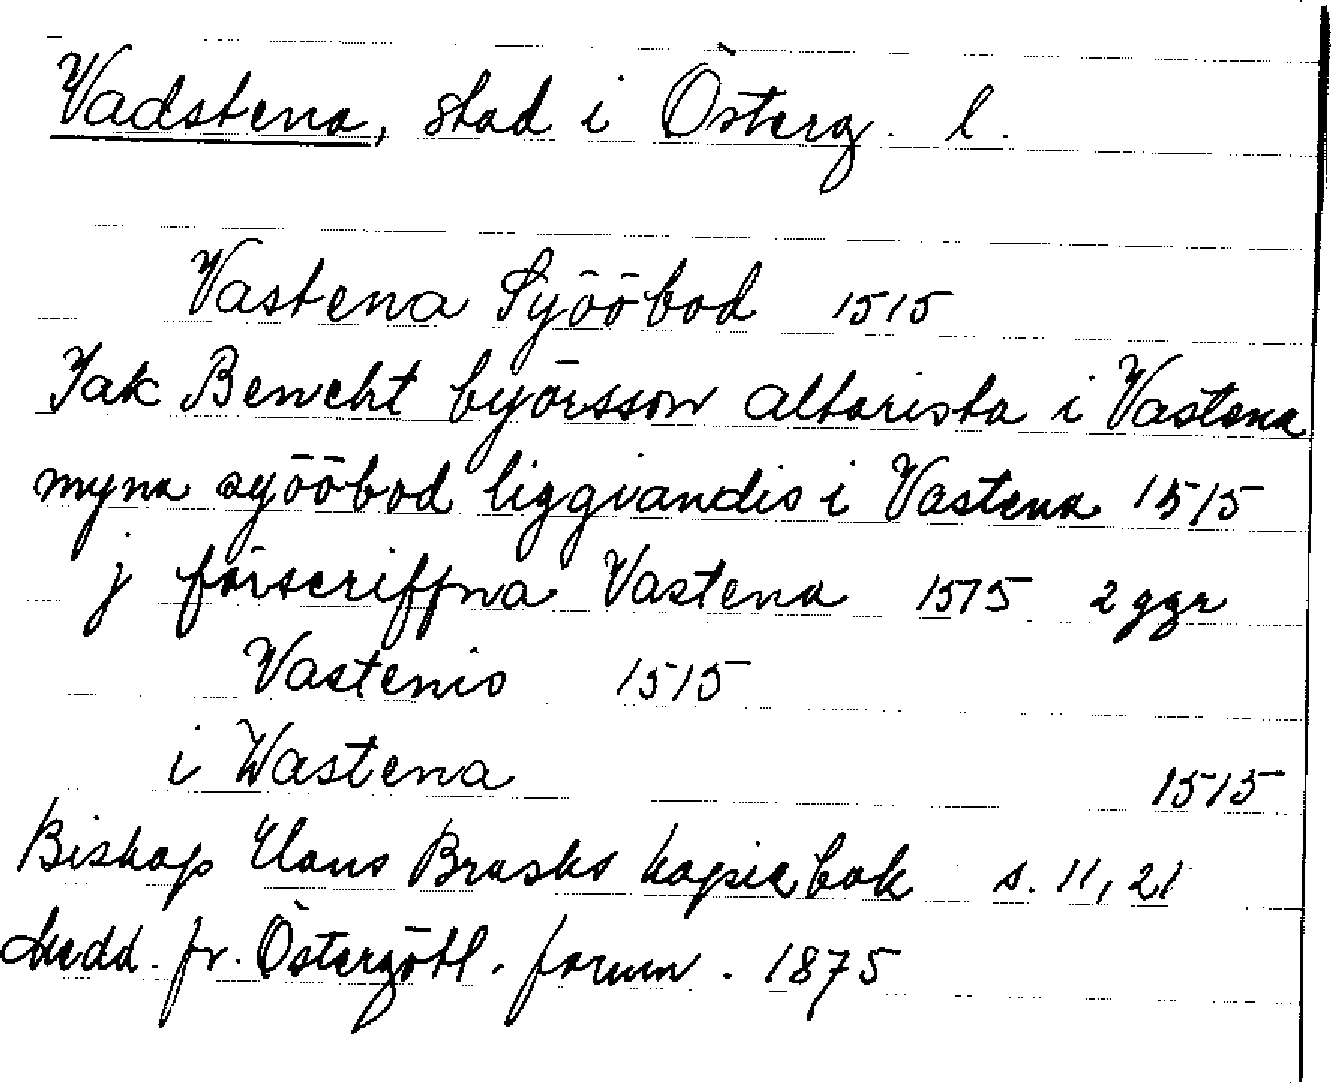 Vadstena, stad i Österg. l.
Vastena Syööbod 1515
Jak Benckt byörsson altarista i Vastena
myna syööbod liggiandis i Vastena 1515
j förscriffna Vastena 1515 2 ggr
Vastenis 1515
i Wastena 1515
Biskop Hans Brasks kopiebok s. 11, 21
Medd. fr. Östergötl. fornm. 1875